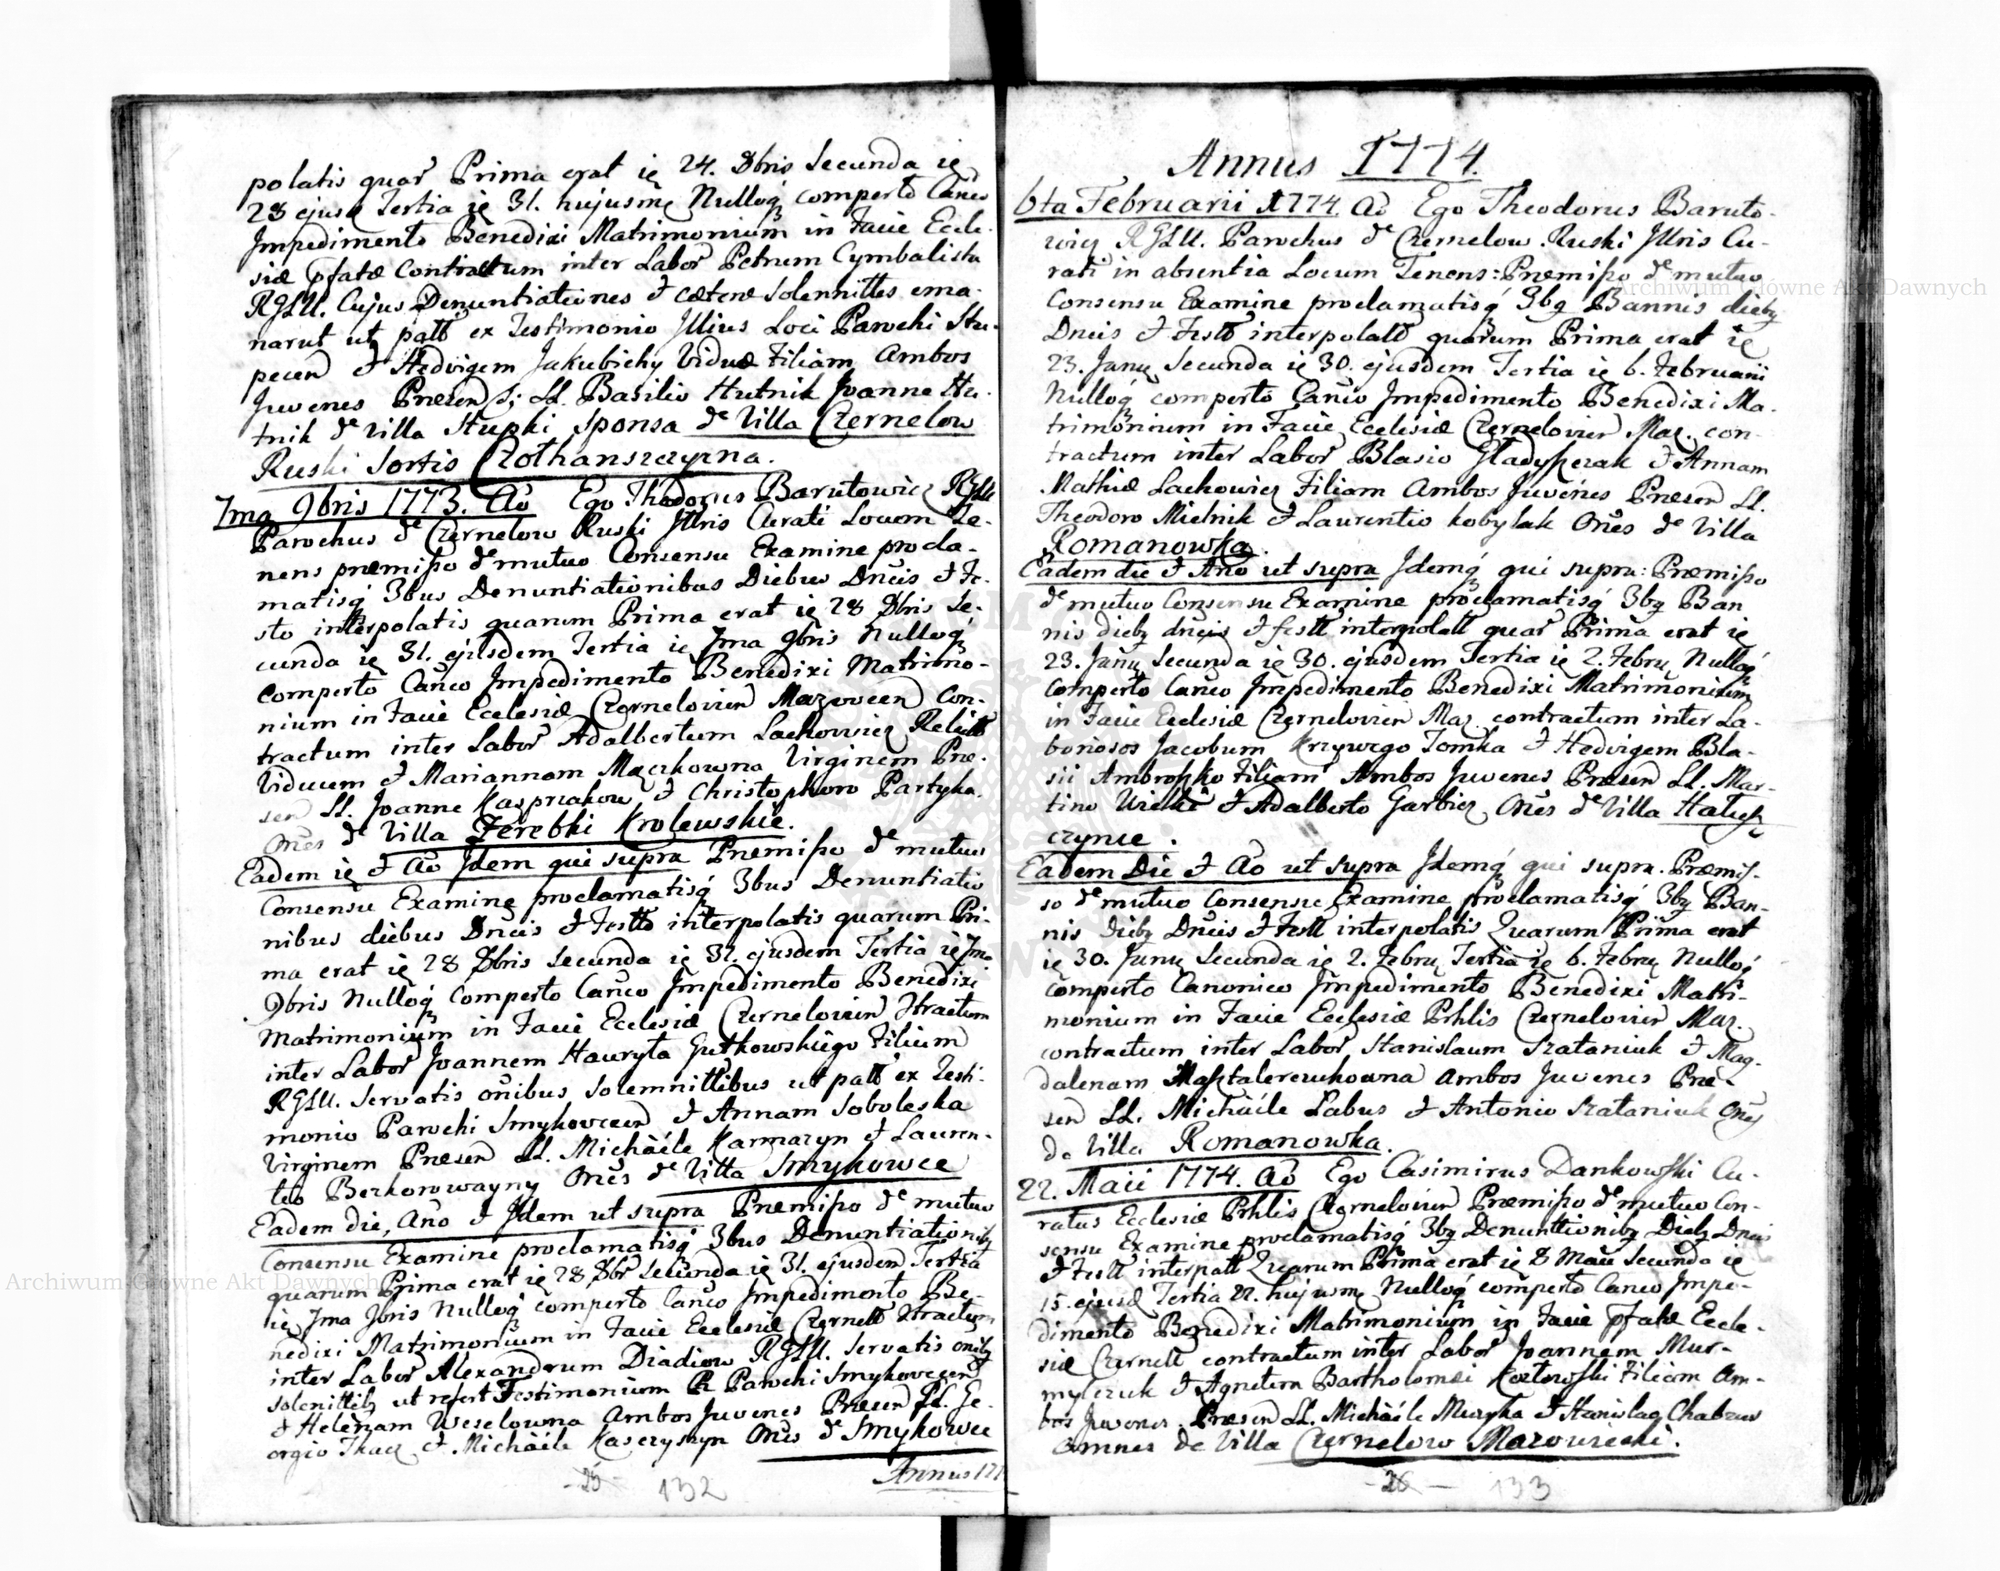 polatis quar Prima erat ię 24. 8bris Secunda ię
28 ejusd Tertia ię 31. hujusmę Nulloq́ comperto Canco
Impedimento Benedixi Matrimonium in Facie Eccle-
siæ pfatæ Contractum inter Labor Petrum Cymbalista
RGLU. Cujus Denuntiationes & cæteræ Solennittes ema-
narut ut patt ex Testimonio Illius Loci Parochi Stu-
pecen & Hedvigem Jakubichy Viduæ Filiam Ambos
Juvenes Præsen LL. Basilio Hutnik Joanne Hu-
tnik de Villa Stupki Sponsa de Villa Czernelow
Ruski Sortis Czothanszczyzna.
7ma 9bris 1773. Ao Ego Theodorus Barutowicz RGLU
Parochus de Czernelow Ruski Illris Curati Locum Te-
nens præmisso de mutuo Consensu Examine procla-
matisq́ 3bus Denuntiationibus Diebus Dncis & Fe-
sto interpolatis quarum Prima erat ię 28 8bris Se-
cunda ię 31. ejusdem Tertia ię 7ma 9bris Nulloq́
Comperto Canco Impedimento Benedixi Matrimo-
nium in Facie Ecclesiæ Czernelovien Mazoveen Con-
tractum inter Labor Adalbertum Lachowicz Relictt
Viduum & Mariannam Mączkowna Virginem Præ-
sen LL. Joanne Kasprzakow & Christophoro Partyka.
Ones de Villa Zerebki Krolewskie.
Eadem ię & Ao Idem qui supra Præmisso de mutuo
Consensu Examine proclamatisq́ 3bus Denuntiatio
nibus diebus Dncis & Festto interpolatis quarum Pri-
ma erat ię 28 8bris Secunda ię 31. ejusdem Tertia ię 7ma
9bris Nulloq́ Comperto Canco Impedimento Benedixi
Matrimonium in Facie Ecclesiæ Czernelovien Ctractum
inter Labor Joannem Hauryla Gutkowskiego Filium
RGLU. Servatis onibus Solemnittibus ut patt ex Testi-
monio Parochi Smykovceen & Annam Soboleska
Virginem Præsen LL. Michäéle Karmazyn & Lauren-
tio Bezkorowayny Ones de Villa Smykowce
Eadem die, Ano & Idem ut supra Præmisso de mutuo
Consensu Examine proclamatisq́ 3bus Denuntiationibȝ
quarum Prima erat ię 28 8br Secunda ię 31. ejusdem Tertia
ię 7ma 9bris Nulloq́ comperto Canco Impedimento Be-
nedixi Matrimonium in Facie Ecclesiæ Czernell Ctractum
inter Labor Alexandrum Diadiow RGLU. Servatis onibȝ
Solenittibȝ ut refert Testimonium R Parochi Smykovceen
& Helenam Weselowna Ambos Juvenes Præsen LL. Ge-
orgio Tkacz & Michäéle Kasczyszyn Ones de Smykowce
Annus 177
- 25 - 132
Annus 1774.
6ta Februarii 1774. Ao Ego Theodorus Baruto-
wicz RGLU. Parochus de Czernelow Ruski Illris Cu-
rati in absentia Locum Tenens: Præmisso de mutuo
Consensu Examine proclamatisq́ 3bȝ Bannis diebȝ
Dncis & Festt interpolatt quarum Prima erat ię
23. Janu Secunda ię 30. ejusdem Tertia ię 6. Februarii
Nulloq́ comperto Canco Impedimento Benedixi Ma-
trimonium in Facie Ecclesiæ Czernelovien Maz. con-
tractum inter Labor Blasio Gladyszczak & Annam
Mathiæ Lachowicz Filiam Ambos Juvenes Præsen LL.
Theodoro Mielnik & Laurentio Kobylak Ones de Villa
Romanowka.
Eadem die & Ano ut supra Idemq́ qui supra: Præmisso
de mutuo Consensu Examine proclamatisq́ 3bȝ Ban
nis diebȝ dncis & festt interpolatt quar Prima erat ię
23. Janu Secunda ię 30. ejusdem Tertia ię 2. Febru Nulloq́
Comperto Canco Impedimento Benedixi Matrimonium
in Facie Ecclesiæ Czernelovien Maz. contractum inter La-
boriosos Jacobum Krzywego Tomka & Hedvigem Bla-
sii Ambroszko Filiam Ambos Juvenes Præsen LL. Mar-
tino Wilki & Adalberto Garbicz Ones de Villa Halusz
czynce.
Eadem Die & Ao ut supra Idemq́ qui supra. Præmis-
so de mutuo Consensu Examine proclamatisq́ 3bȝ Ban-
nis diebȝ Dncis & Festt interpolatis Quarum Prima erat
ię 30. Janu Secunda ię 2. Febru Tertia ię 6. Febru Nulloq́
comperto Canonico Impedimento Benedixi Matri-
monium in Facie Ecclesiæ Prhlis Czernelovien Maz.
contractum inter Labor Stanislaum Szataniuk & Mag-
dalenam Masztalerczukowna Ambos Juvenes Præ-
sen LL. Michäéle Labus & Antonio Szataniuk Ones
de Villa Romanowka.
22. Maii 1774. Ao Ego Casimirus Dankowski Cu-
ratus Ecclesiæ Prhlis Czernelovien Præmisso de mutuo Con-
sensu Examine proclamatisq́ 3bȝ Denunttionibȝ Diebȝ Dncis
& Festt interpatt Quarum Prima erat ię 8 Maii Secunda ię
15. ejusd Tertia 22. hujusmę Nulloq́ comperto Canco Impe-
dimento Benedixi Matrimonium in Facie pfatæ Eccle-
siæ Czernell contractum inter Labor Joannem Mur-
mylczuk & Agnetem Bartholomæi Kozłowski Filiam Am-
bos Juvenes. Præsen LL. Michäéle Muzyka & Stanislao Chabrus
Omnes de Villa Czernelow Mazowiecki.
- 26 - 133
Archiwum Główne Akt Dawnych
Archiwum Główne Akt Dawnych